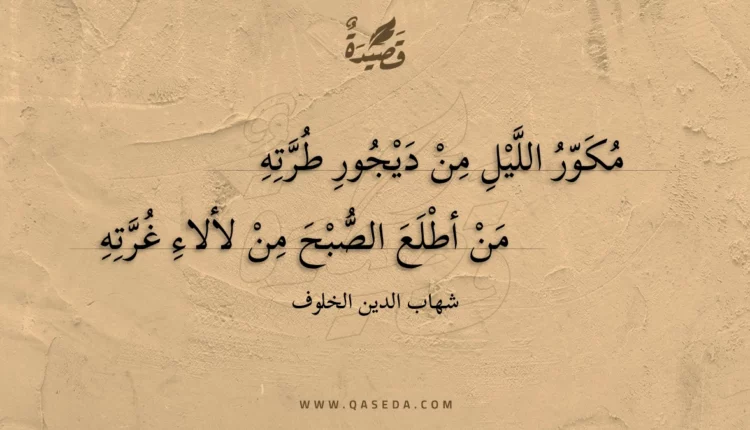 قَصِيدَةٌ
مُكَوِّرُ اللَّيْلِ مِنْ دَيْجُورِ طُرَّتِهِ
مَنْ أطْلَعَ الصُّبْحَ مِنْ لألاءِ غُرَّتِهِ
شهاب الدين الخلوف
WWW.QASEDA.COM